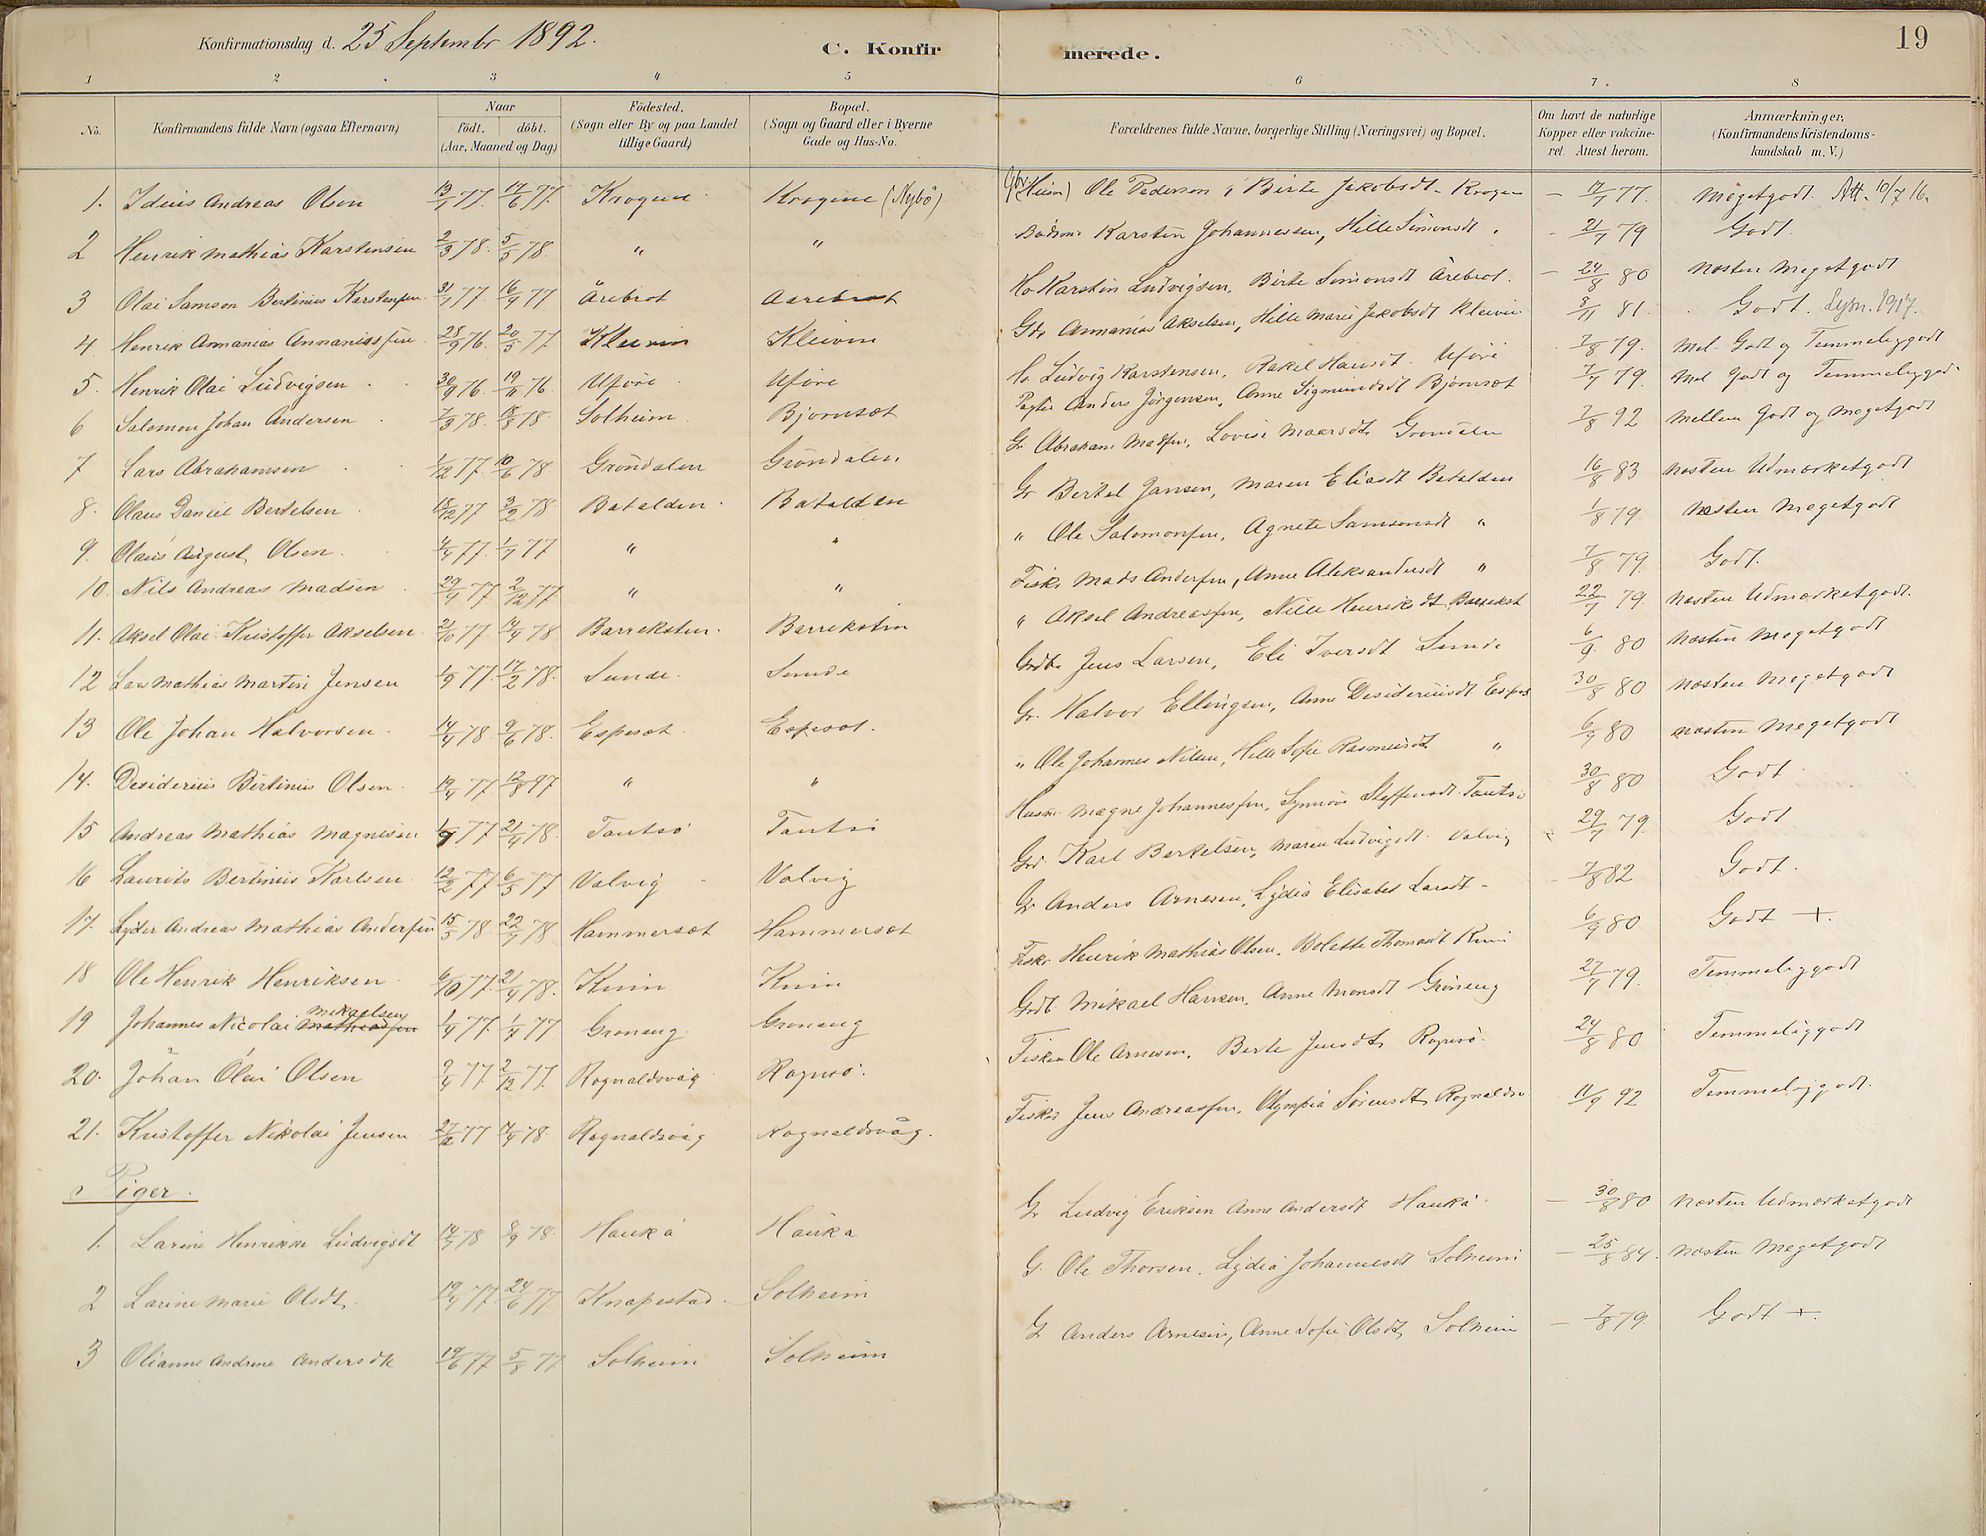 Konfirmationsdag d. 25 September 1892.
C. Konfirmerede.
19
1 2 3 4 5 6 7. 8
No.
Konfirmandens fulde Navn (ogsaa Efternavn)
Naar
født. døbt.
(Aar, Maaned og Dag)
Födested.
(Sogn eller By og paa Landet
tillige Gaard)
Bopæl.
(Sogn og Gaard eller i Byerne
Gade og Hus-No.
Forældrenes fulde Navne, borgerlige Stilling (Næringsvei) og Bopæl.
Om havt de naturlige
Kopper eller vakcine-
ret. Attest herom.
Anmærkninger.
(Konfirmandens Kristendoms-
kundskab m. V.)
1. Andreas Olsen 77. 77. Krogene (Nybö) Ole Pedersen Birte Jakobsdt. 77. Megetgodt. Att. 10/7 16.
2 Henrik Mathias Karstensen 2/3 78. 5/5 78. " " Karsten Johannessen, Hille Simonsdt 21/7 79 Godt.
3 Olai Samson Bertinius Karstensen 31/7 77. 16/9 77 Årebrot Aarebrot Karsten Ludvigsen, Birte Simonsdt Årebrot. 24/8 80 næsten Megetgodt
4. Henrik Annanias Annaniassen 28/9 76. 20/5 77 Kleiven Kleiven Annanias Akselsen, Hille Marie Jakobsdt Kleiven 8/11 81. Godt. 1917.
5. Henrik Olai Ludvigsen 30/9 76. 19/11 76. Uföre Uföre Ludvig Karstensen, Rakel Hansdt. Uföre 7/8 79. Mel. Godt og Temmeliggodt
6 Salomon Johan Andersen 7/3 78. 18/8 78. Solheim Bjornset Anders Jörgensen, Anne Sigmundsdt Bjornset 7/7 79. Mel Godt og Temmeliggodt
7 Lars Abrahamsen 1/12 77. 10/6 78. Gröndalen Gröndalen Gr Abraham Madsen, Lovise Gröndalen 7/8 92 Mellem Godt og Megetgodt
8. Olaus Daniel Bertelsen 18/12 77 3/2 78 Batalden Batalden Gr Bertel Jansen, Maren Eliasdt Batalden 16/8 83 næsten Udmærketgodt
9. Olaus August Olsen. 77. 77 " " " Ole Salomonsen, Agnete Samsonsdt " 1/8 79. Næsten Megetgodt
10. Nils Andreas Madsen 29/4 77 2/12 77 " " Fisker Mads Andersen, Anne Aleksandersdt " 7/8 79. Godt.
11. Aksel Olai Kristoffer Akselsen 21/10 77. 14/4 78 Barreksten. Barreksten " Aksel Andreassen, Nille Henriksdt Barrekst 22/7 79. Næsten Udmærketgodt.
12 Lars Mathias Martin Jensen 1/9 77. 17/2 78. Sunde. Sunde Jens Larsen, Eli Iversdt Sunde 6/9. 80 næsten Megetgodt
13 Ole Johan Halvorsen. 14/4 78. 9/6 78. Espeset Espeset. Gr. Halvor Ellingsen, Anne Desideriusdt 30/8 80 næsten Megetgodt
14. Desiderius Bertinius Olsen. 19/4 77 12/8 77 " " " Ole Johannes Nilsen, Hille Sofie Rasmusdt " 6/9 80 næsten Megetgodt
15 Andreas Mathias Magnesen 77 21/4 78. Tautsö Tautsö Magne Johannessen, Synnöve Steffensdt. Tautsö 30/8 80 Godt
16 Laurits Bertinius Karlsen. 12/2 77 6/5 77 Valvig Valvig Karl Bertelsen, Maren Ludvigsdt. Valvig 29/7 79. Godt
17. Lyder Andreas Mathias Andersen 15/5 78. 22/7 78 Hammerset Hammerset Gr Anders Arnesen, Lydia Elisabet Larsdt – 7/8 82 Godt.
18 Ole Henrik Henriksen 6/10 77. 21/4 78. Kvien Kvien Fisker Henrik Mathias Olsen, Bolette Thomasdt 6/9 80 Godt +.
19 Johannes Nicolai Mikaelsen 77. 77 Gröneng. Gröneng Mikael Hansen, Anne Monsdt Gröneng 27/7 79. Temmeliggodt
20. Johan Olai Olsen 9/4 77 2/12 77. Rognaldsvåg Rognsö. Fisker Ole Arnesen, Berte Jensdt Rognsö. 24/8 80 Temmeliggodt
21. Kristoffer Nikolai Jensen 27/12 77 78. Rognaldsvåg Rognaldsvåg. Fisker Jens Andreassen, Olympia Sörensdt, 11/9 92 Temmeliggodt.
Piger.
1. Larine Henrikke Ludvigsdt 78 8/9 78. Haukå Hauka Gr Ludvig Eriksen Anne Andersdt Haukå. – 30/8 80 næsten Udmærketgodt
2 Larine Marie Olsdt. 19/4 77 24/6 77. Knapestad Solheim G. Ole Thorsen. Lydia Johannesdt Solheim – 25/8 84. næsten Megetgodt
3 Olianne Andrine Andersdt 19/6 77 5/8 77 Solheim Solheim G Anders Arnesen, Anne Sofie Olsdt, Solheim – 7/8 79. Godt +.